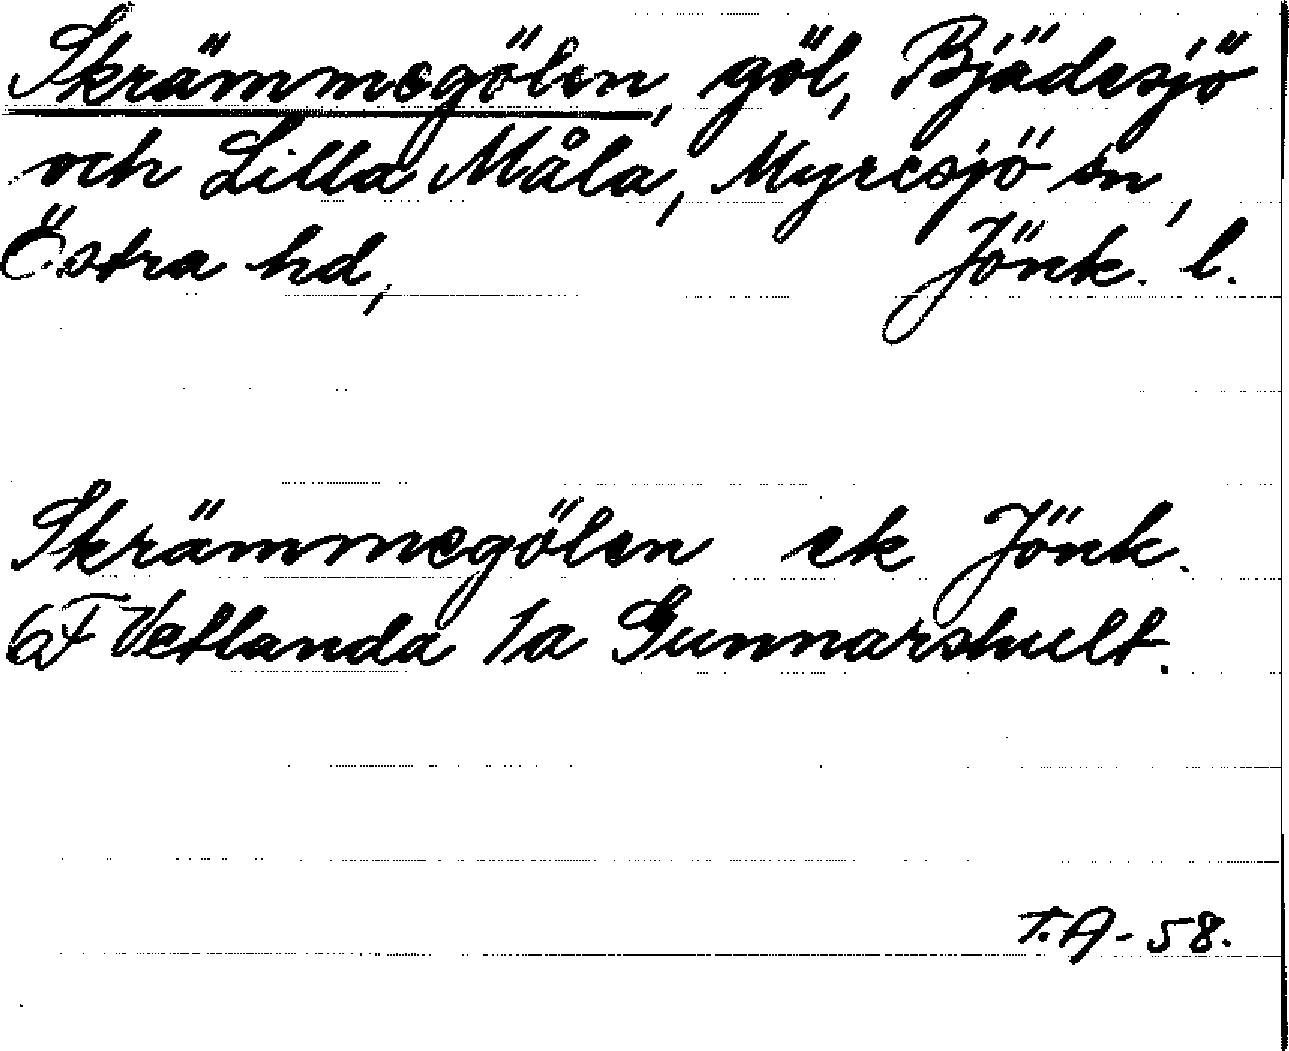 Skrämmegölen, göl, Bjädesjö
och Lilla Måla, Myresjö sn,
Östra hd, Jönk. l.
Skrämmegölen ek Jönk.
6F Vetlanda 1a Gunnarshult.
T.A-58.